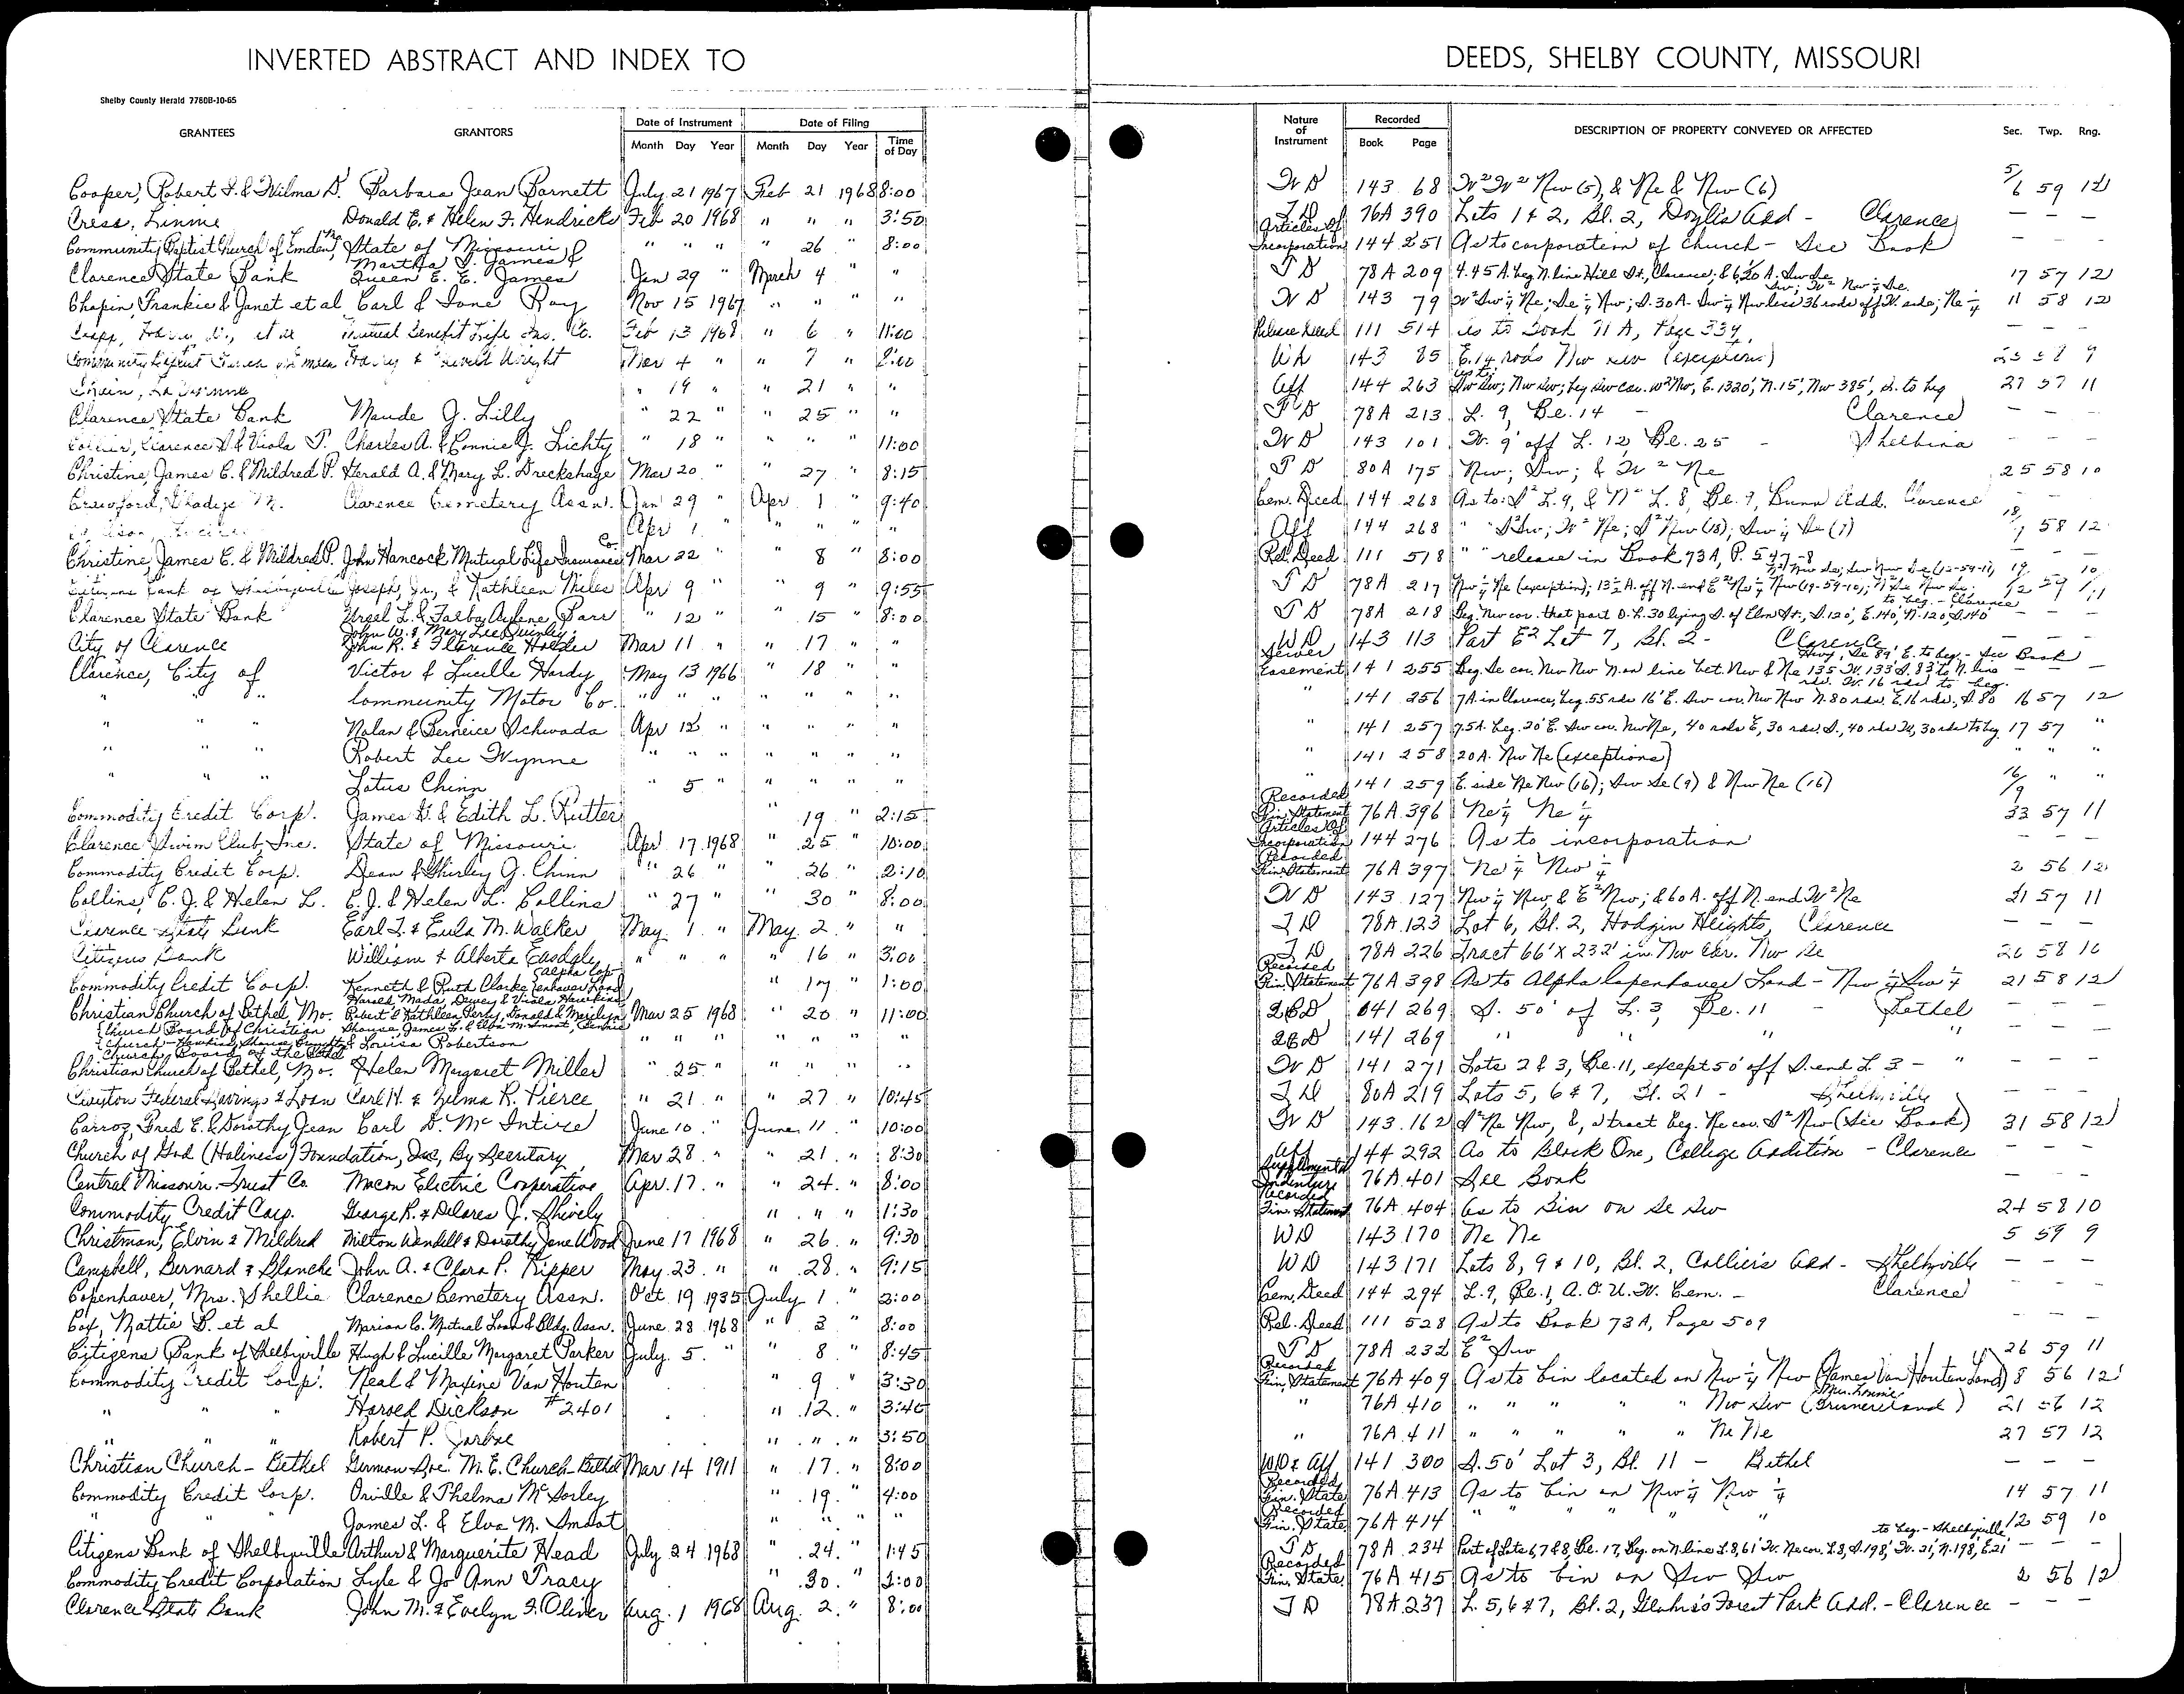 INVERTED ABSTRACT AND INDEX TO DEEDS, SHELBY COUNTY, MISSOURI
Shelby County Herald 7780B-10-65
GRANTEES GRANTORS Date of Instrument Date of Filing Nature of Instrument Recorded DESCRIPTION OF PROPERTY CONVEYED OR AFFECTED Sec. Twp. Rng.
Month Day Year Month Day Year Time of Day Book Page
Cooper, Robert & Wilma D. Barbara Jean Barnett July 21 1967 Feb 21 1968 8:00 W D 143 68 W² W² Nw (5), & Ne & Nw (6) 5/6 59 12
Cress, Linnie Donald E. & Helen F. Hendricks Feb 20 1968 " " " 3:50 T D 76A 390 Lots 1 & 2, Bl. 2, Doyle's Add - Clarence — — —
Community Baptist Church of Emden, Mo State of Missouri " " " " 26 " 8:00 Articles Of Incorporation 144 251 As to corporation of Church - See Book — — —
Clarence State Bank Martha D. James & Queen E. E. James Jan 29 " March 4 " " T D 78A 209 4.45 A. beg N. line Hill St., Clarence; 17 57 12
Chapin, Frankie & Janet et al Carl & Ione Ray Nov 15 1967 " " " " W D 143 79 W² Sw ¼ Ne; Se ¼ Nw; S. 30 A. Sw ¼ Nw less 36 rods off W. side; Ne ¼ 11 58 12
et al Mutual Benefit Life Ins. Co. Feb 13 1968 " 6 " 11:00 Release Deed 111 514 As to Book 71 A, Page 339 — — —
Community Baptist Church of Emden Harry & Wright Mar 4 " " 7 " 8:00 WD 143 85 E. 14 rods Nw (exception) 9
" 19 " " 21 " " Aff 144 263 Sw Sw; Nw Sw; beg Sw cor. W² Nw, E. 1320', N. 15', Nw 385', S. to beg 27 57 11
Clarence State Bank Maude J. Lilly " 22 " " 25 " " T D 78A 213 L. 9, Bl. 14 - Clarence — — —
Collier, Clarence D. & Viola P. Charles A. & Connie J. Lichty " 18 " " " " 11:00 W D 143 101 W. 9' off L. 12, Bl. 25 - Shelbina — — —
Christine, James E. & Mildred P. Herald A. & Mary L. Dreckshage Mar 20 " " 27 " 8:15 T D 80A 175 Nw; Sw; & W² Ne 25 58 10
Crawford, Gladys M. Clarence Cemetery Assn. Jan 29 " Apr 1 " 9:40 Cem. Deed 144 268 As to: S² L. 9, & N² L. 8, Bl. 9, Bunn Add. Clarence — — —
Apr 1 " " " " " Aff 144 268 " " S² Sw; W² Ne; S² Nw (18); Sw ¼ Se (7) 18/7 58 12
Christine, James E. & Mildred P. John Hancock Mutual Life Insurance Co. Mar 22 " " 8 " 8:00 Rel. Deed 111 518 " " release in Book 73A, P. 547-8 — — —
Citizens Bank of Shelbyville Joseph, Jr., & Kathleen Miles Apr 9 " " 9 " 9:55 T D 78A 217 Nw ¼ Ne (exception); 13½ A. off N. end E² Ne ¼ Nw (19-59-10);
Clarence State Bank Virgel L. & Falba Aylene Barr " 12 " " 15 " 8:00 T D 78A 218 Beg. Nw cor. that part O. L. 30 lying S. of Elm St., S. 120', E. 140', N. 120', S. 140' to beg. - Clarence
City of Clarence John W. & Mary Lee Quinley; John R. & Florence Holder Mar 11 " " 17 " " WD 143 113 Part E² Lot 7, Bl. 2 - Clarence — — —
Clarence, City of Victor & Lucille Hardy May 13 1966 " 18 " " Sewer Easement 141 255 Beg. Se cor. Nw Nw N. on line bet. Nw & Ne 135' W. 133' S. 83' to N. line Hwy, Se 89' E. to beg - See Book
" " " Community Motor Co. " " " " " " " " 141 256 7A in Clarence, beg. 55 rds 16' E. Sw cor. Nw Nw N. 80 rds. E. 16 rds., S. 80 rds. W. 16 rds to beg. 16 57 12
" " " Nolan & Berneice Schwada Apr 12 " " " " " " 141 257 7.5 A. beg. 20' E. Sw cor. Nw Ne, 40 rods E, 30 rds. S., 40 rds W, 30 rds to beg. 17 57 "
" " " Robert Lee Wynne " " " " " " " 141 258 20 A. Nw Ne (exceptions) " " "
" " " Lotus Chinn " 5 " " " " " " 141 259 E. side Ne Nw (16); Sw Se (9) & Nw Ne (16) 16/9 " "
Commodity Credit Corp. James D. & Edith L. Rutter " 19 " 2:15 Recorded Fin. Statement 76A 396 Ne ¼ Ne ¼ 33 57 11
Clarence Swim Club, Inc. State of Missouri Apr 17 1968 " 25 " 10:00 Articles Of Incorporation 144 276 As to incorporation — — —
Commodity Credit Corp. Dean & Shirley G. Chinn " 26 " " 26 " 2:10 Recorded Fin. Statement 76A 397 Ne ¼ Nw ¼ 2 56 12
Collins, E. J. & Helen L. E. J. & Helen L. Collins " 27 " " 30 " 8:00 W D 143 127 Nw ¼ Nw, & E² Nw; & 60 A. off N. end W² Ne 21 57 11
Clarence State Bank Earl T. & Eula M. Walker May 1 " May 2 " " T D 78A 123 Lot 6, Bl. 2, Hodgin Heights, Clarence — — —
Citizens Bank William & Alberta Easdale " " " " 16 " 3:00 T D 78A 226 Tract 66' X 232' in Nw Cor. Nw Se 26 58 10
Commodity Credit Corp. Kenneth & Ruth Clarke (Alpha Copenhaver Land) " 17 " 1:00 Recorded Fin. Statement 76A 398 As to Alpha Copenhaver Land - Nw ¼ Sw ¼ 21 58 12
Christian Church of Bethel, Mo. Harold, Mada, Dewey & Viola Hawkins, Robert & Kathleen Perry, Donald & Marilyn Shouse, James L. & Elba M. Smoot, Mar 25 1968 " 20 " 11:00 QCD 141 269 S. 50' of L. 3, Bl. 11 - Bethel — — —
Church Board of Christian Church - Hawkins, Shouse, & Louisa Robertson " " " " " " " QCD 141 269 " " " " — — —
Church Board of the Christian Church of Bethel, Mo. Helen Margaret Miller " 25 " " " " " W D 141 271 Lots 2 & 3, Bl. 11, except 50' off S. end L. 3 - " — — —
Federal Savings & Loan Carl H. & Zelma R. Pierce " 21 " " 27 " 10:45 T D 80A 219 Lots 5, 6 & 7, Bl. 21 - Shelbyville — — —
Carroz, Fred E. & Dorothy Jean Carl D. McIntire June 10 " June 11 " 10:00 W D 143 162 S² Ne Nw, &, tract beg. Ne cor. S² Nw (See Book) 31 58 12
Church of God (Holiness) Foundation, Inc, By Secretary Mar 28 " " 21 " 8:30 Aff 144 292 As to Block One, College Addition - Clarence — — —
Central Missouri Trust Co. Macon Electric Cooperative Apr. 17 " " 24 " 8:00 Supplemental Indenture 76A 401 See Book
Commodity Credit Corp. George R. & Delores J. Shively " " " 1:30 Recorded Fin. Statement 76A 404 As to Bin on Se Sw 24 58 10
Christman, Elvin & Mildred Milton Wendell & Dorothy Jane Wood June 17 1968 " 26 " 9:30 WD 143 170 Ne Ne 5 59 9
Campbell, Bernard & Blanche John A. & Clara P. Kipper May 23 " " 28 " 9:15 WD 143 171 Lots 8, 9 & 10, Bl. 2, Collier's Add - Shelbyville — — —
Copenhaver, Mrs. Shellie Clarence Cemetery Assn. Oct. 19 1935 July 1 " 2:00 Cem. Deed 144 294 L. 9, Bl. 1, A. O. U. W. Cem. - Clarence
Cox, Nattie B. et al Marion Co. Mutual Loan & Bldg. Assn. June 28 1968 " 3 " 8:00 Rel. Deed 111 528 As to Book 73A, Page 509 — — —
Citizens Bank of Shelbyville Hugh & Lucille Margaret Parker July 5 " " 8 " 8:45 T D 78A 232 E² Sw 26 59 11
Commodity Credit Corp. Neal & Maxine Van Houten " 9 " 3:30 Recorded Fin. Statement 76A 409 As to bin located on Nw ¼ Nw (James Van Houten Land) 8 56 12
" " " Harold Dickson #2401 " 12 " 3:40 " 76A 410 " " " " " Nw Sw (Mrs. Lonnie land) 21 56 12
" " " Robert P. Jarboe " " " 3:50 " 76A 411 " " " " " Ne Ne 27 57 12
Christian Church - Bethel German Soc. M. E. Church - Bethel Mar 14 1911 " 17 " 8:00 WD & Aff 141 300 S. 50' Lot 3, Bl. 11 - Bethel — — —
Commodity Credit Corp. Orville & Thelma McSorley " 19 " 4:00 Recorded Fin. State 76A 413 As to bin on Nw ¼ Nw ¼ 14 57 11
" James L. & Elva M. Smoot " " " " Recorded Fin. State 76A 414 " " " " " 12 59 10
Citizens Bank of Shelbyville Arthur & Marguerite Head July 24 1968 " 24 " 1:45 T D 78A 234 Part of Lots 6, 7 & 8, Bl. 17, Beg. on N. line L. 8, 61' W. Ne cor. L. 8, S. 198', W. 21', N. 198', E. 21' to beg. - Shelbyville — — —
Commodity Credit Corporation Lyle & Jo Ann Tracy " 30 " 1:00 Recorded Fin. State 76A 415 As to bin on Sw Sw 2 56 12
Clarence State Bank John M. & Evelyn I. Oliver Aug. 1 1968 Aug. 2 " 8:00 T D 78A 237 L. 5, 6 & 7, Bl. 2, Forest Park Add. - Clarence — — —